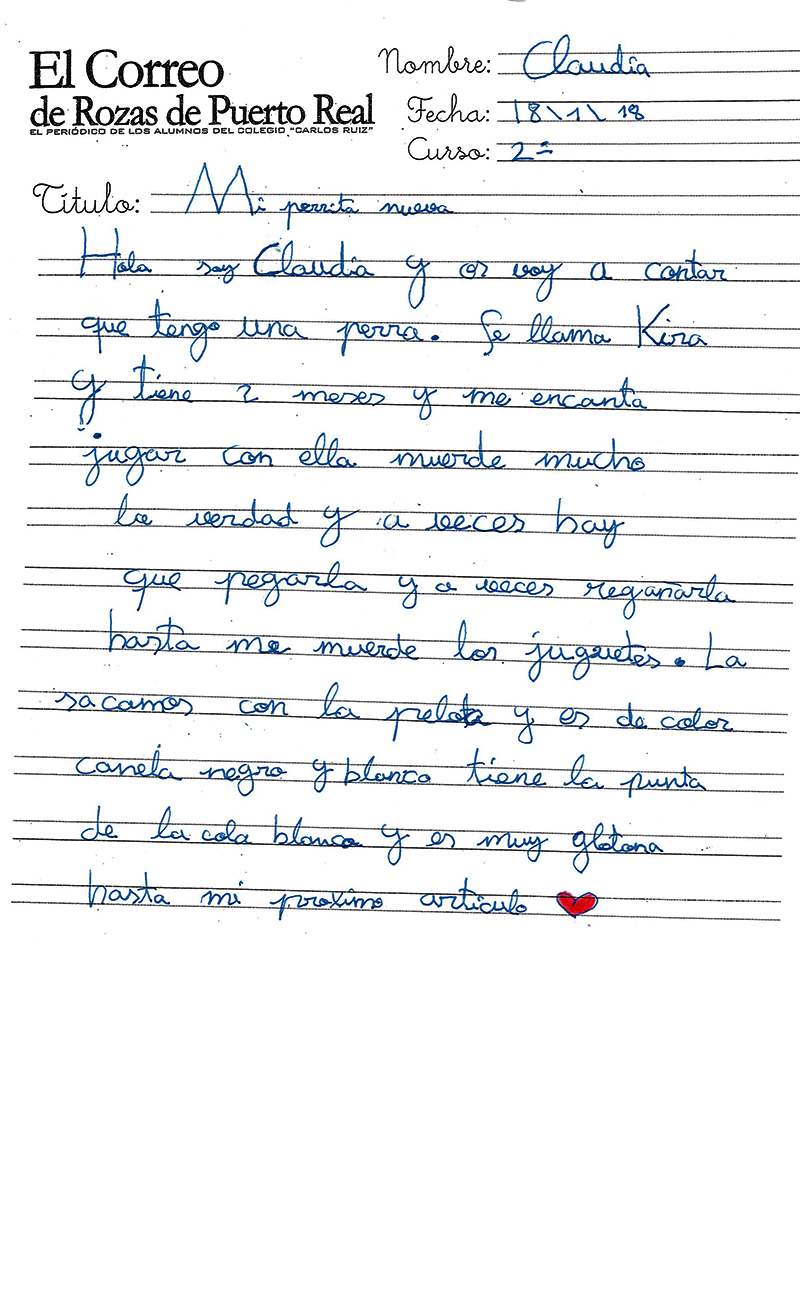 El Correo
de Rozas de Puerto Real
EL PERIÓDICO DE LOS ALUMNOS DEL COLEGIO "CARLOS RUIZ"
Nombre: Claudia
Fecha: 18\1\18
Curso: 2º
Título: Mi perrita nueva
Hola soy Claudia y os voy a contar
que tengo una perra. Se llama Kira
y tiene 2 meses y me encanta
jugar con ella muerde mucho
la verdad y a veces hay
que pegarla y a veces regañarla
hasta me muerde los juguetes. La
sacamos con la pelota y es de color
canela negro y blanco tiene la punta
de la cola blanca y es muy glotona
hasta mi proximo articulo